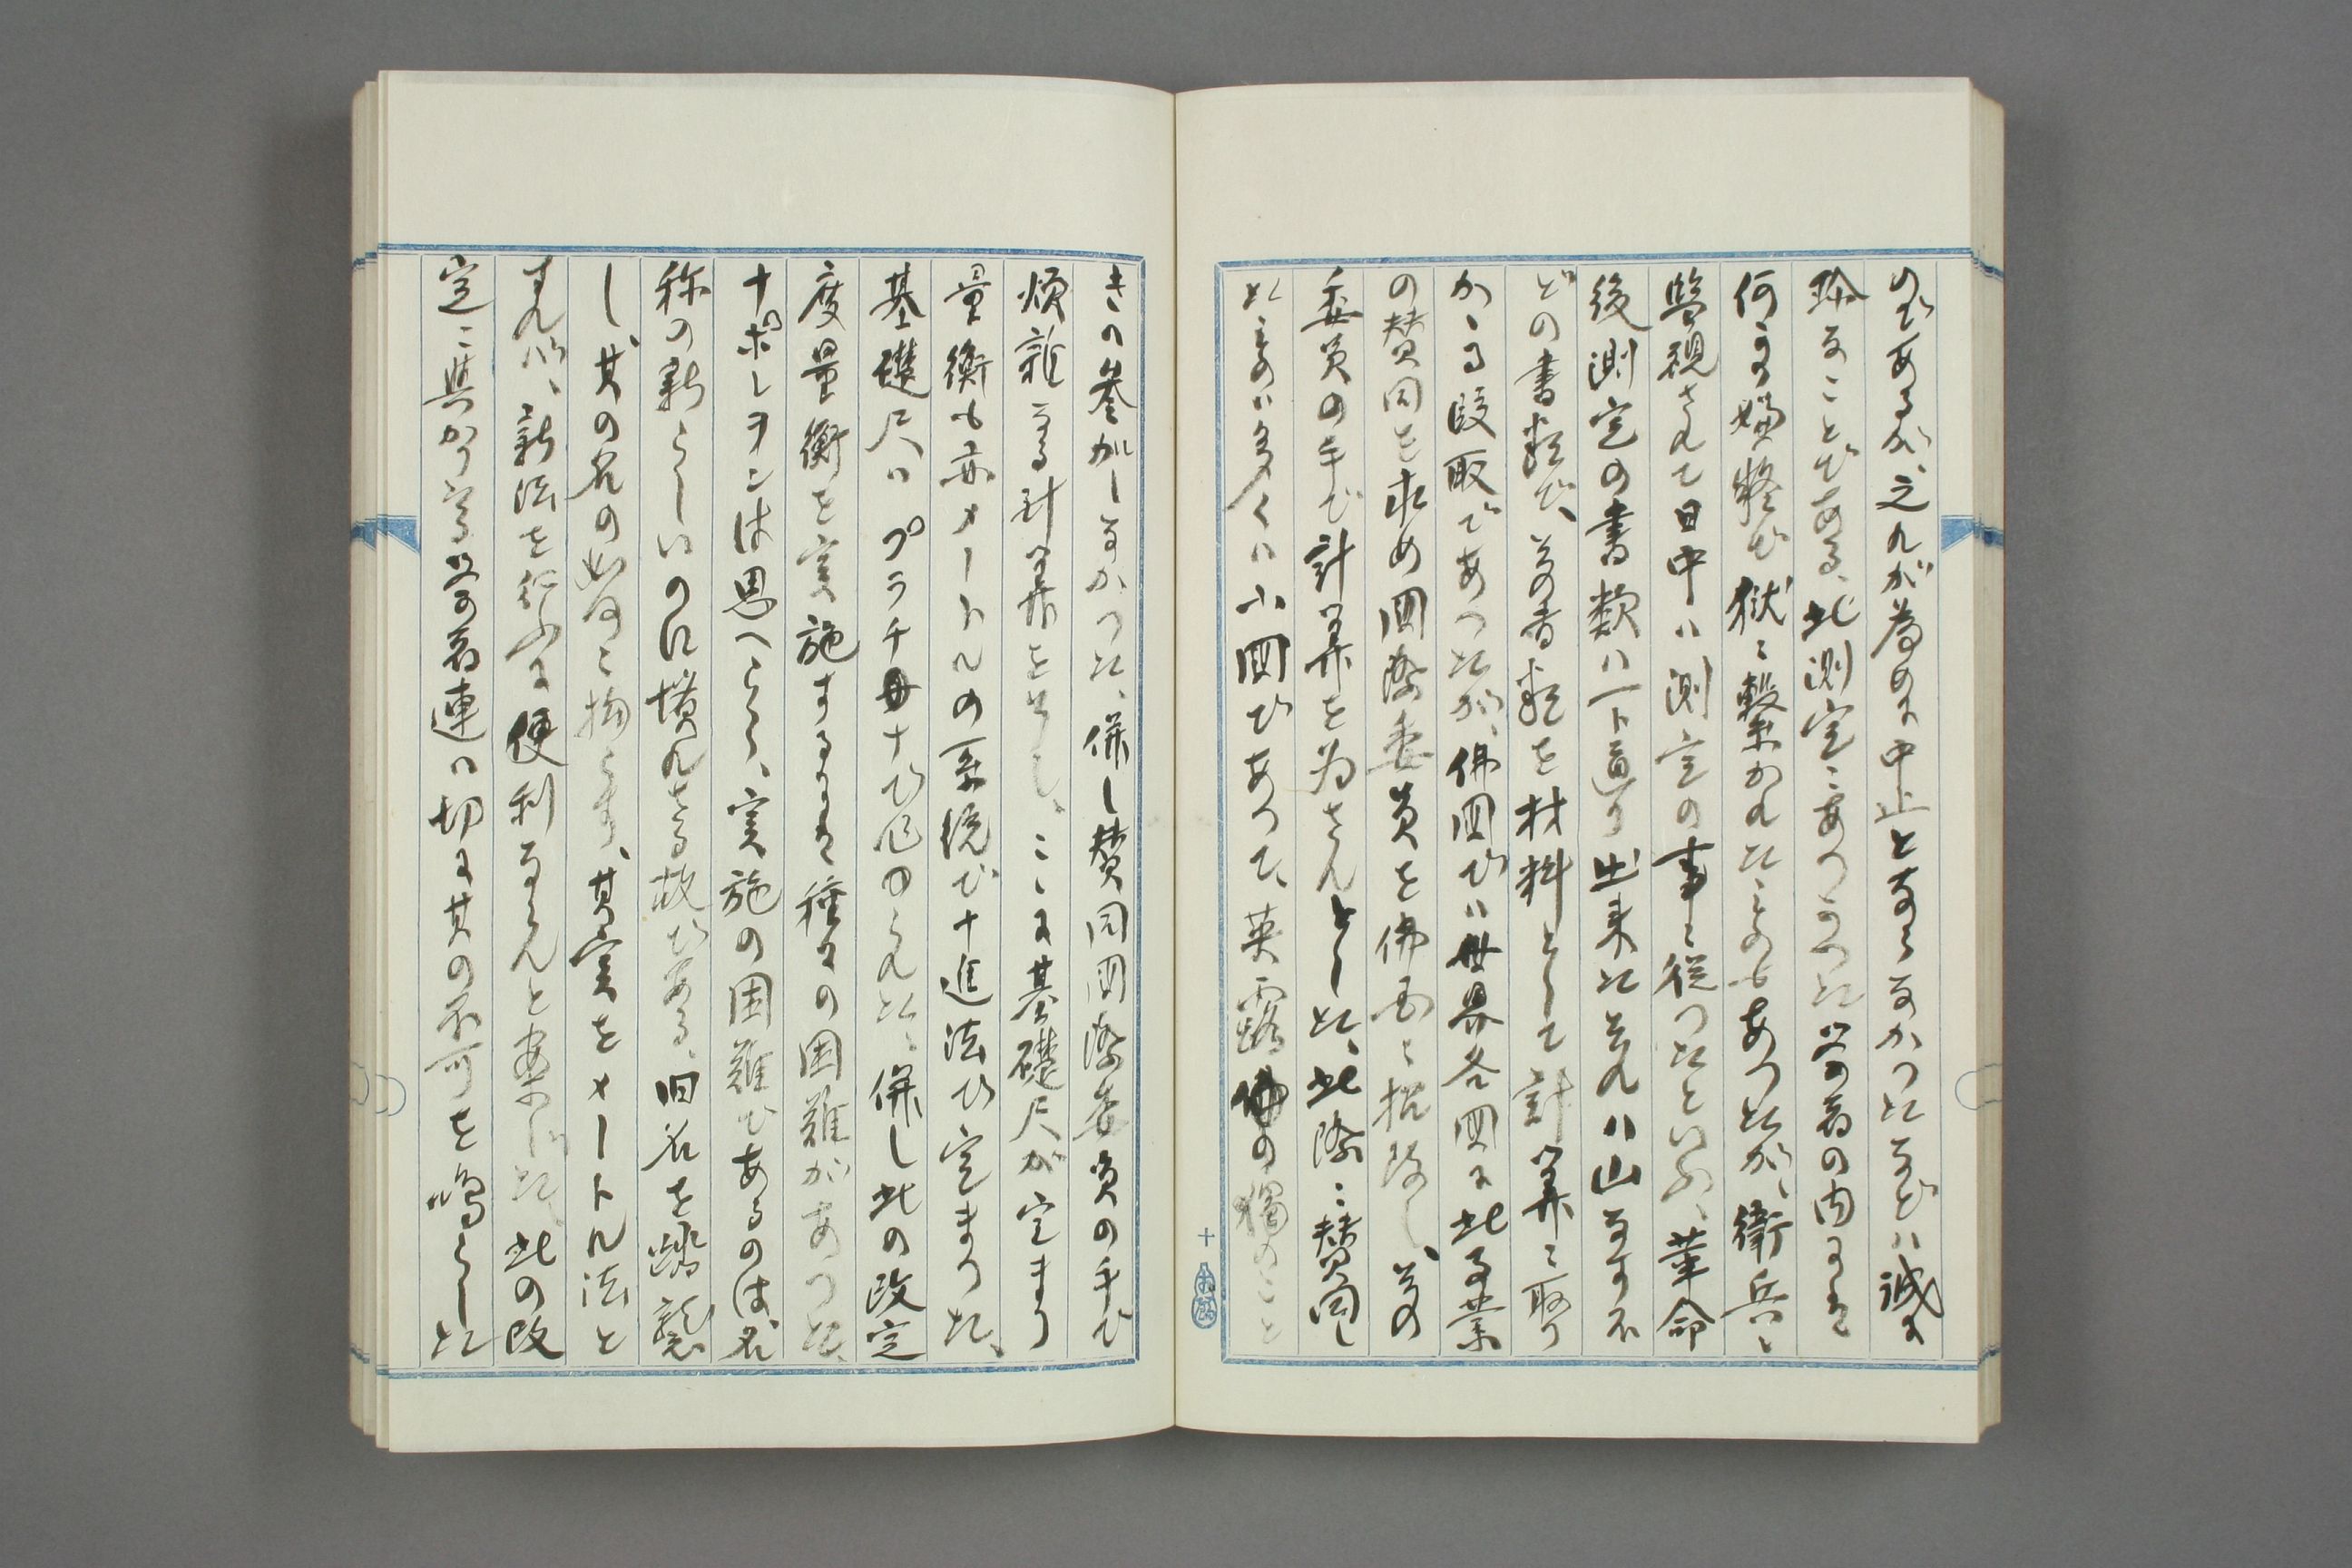 のであるが、之れが為めに中止とならなかつたなどハ誠に
珍なことである、此測定に与つた学者の内にハ
何にか嫌疑で獄に繋かれたものもあつたが、衛兵に
監視されて日中ハ測定の事に従つたといふ、革命
後測定の書類ハ一ト通り出来たそれハ山なすほ
どの書類で、其の書類を材料として計算に取り
かゝる段取であつたが、佛国でハ世界各国に此事業
の賛同を求め国際委員を佛国に招待し、其の
委員の手で計算を為さんとした、此際に賛同し
たものハ多くハ小国であつて、英露の如きこと
きの参加しなかつた、併し賛同国際委員の手で
煩雑なる計算を了し、こゝに基礎尺が定まり
量衡も亦メートルの系統で十進法で定まつた、
基礎尺ハプラチナで作られた、併し此の改定
度量衡を実施するにハ種々の困難があつた、
ナポレヲンは思へらく、実施の困難であるのは名
称の新らしいのに慣れざる故である、旧名を踏襲
し、其の名の如何に拘らず、其実をメートル法と
すれバ、新法を行ふに便利ならんと案じた、此の改
定に与かりたる学者連ハ切に其の不可を鳴らした
十